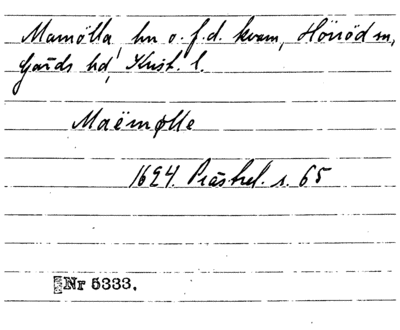 Mamölla, hn o. f.d. kvarn, Hörröd sn,
Gärds hd, Krist. l.
Maëmølle
1624. Prästrel. s. 65
Nr 5333.